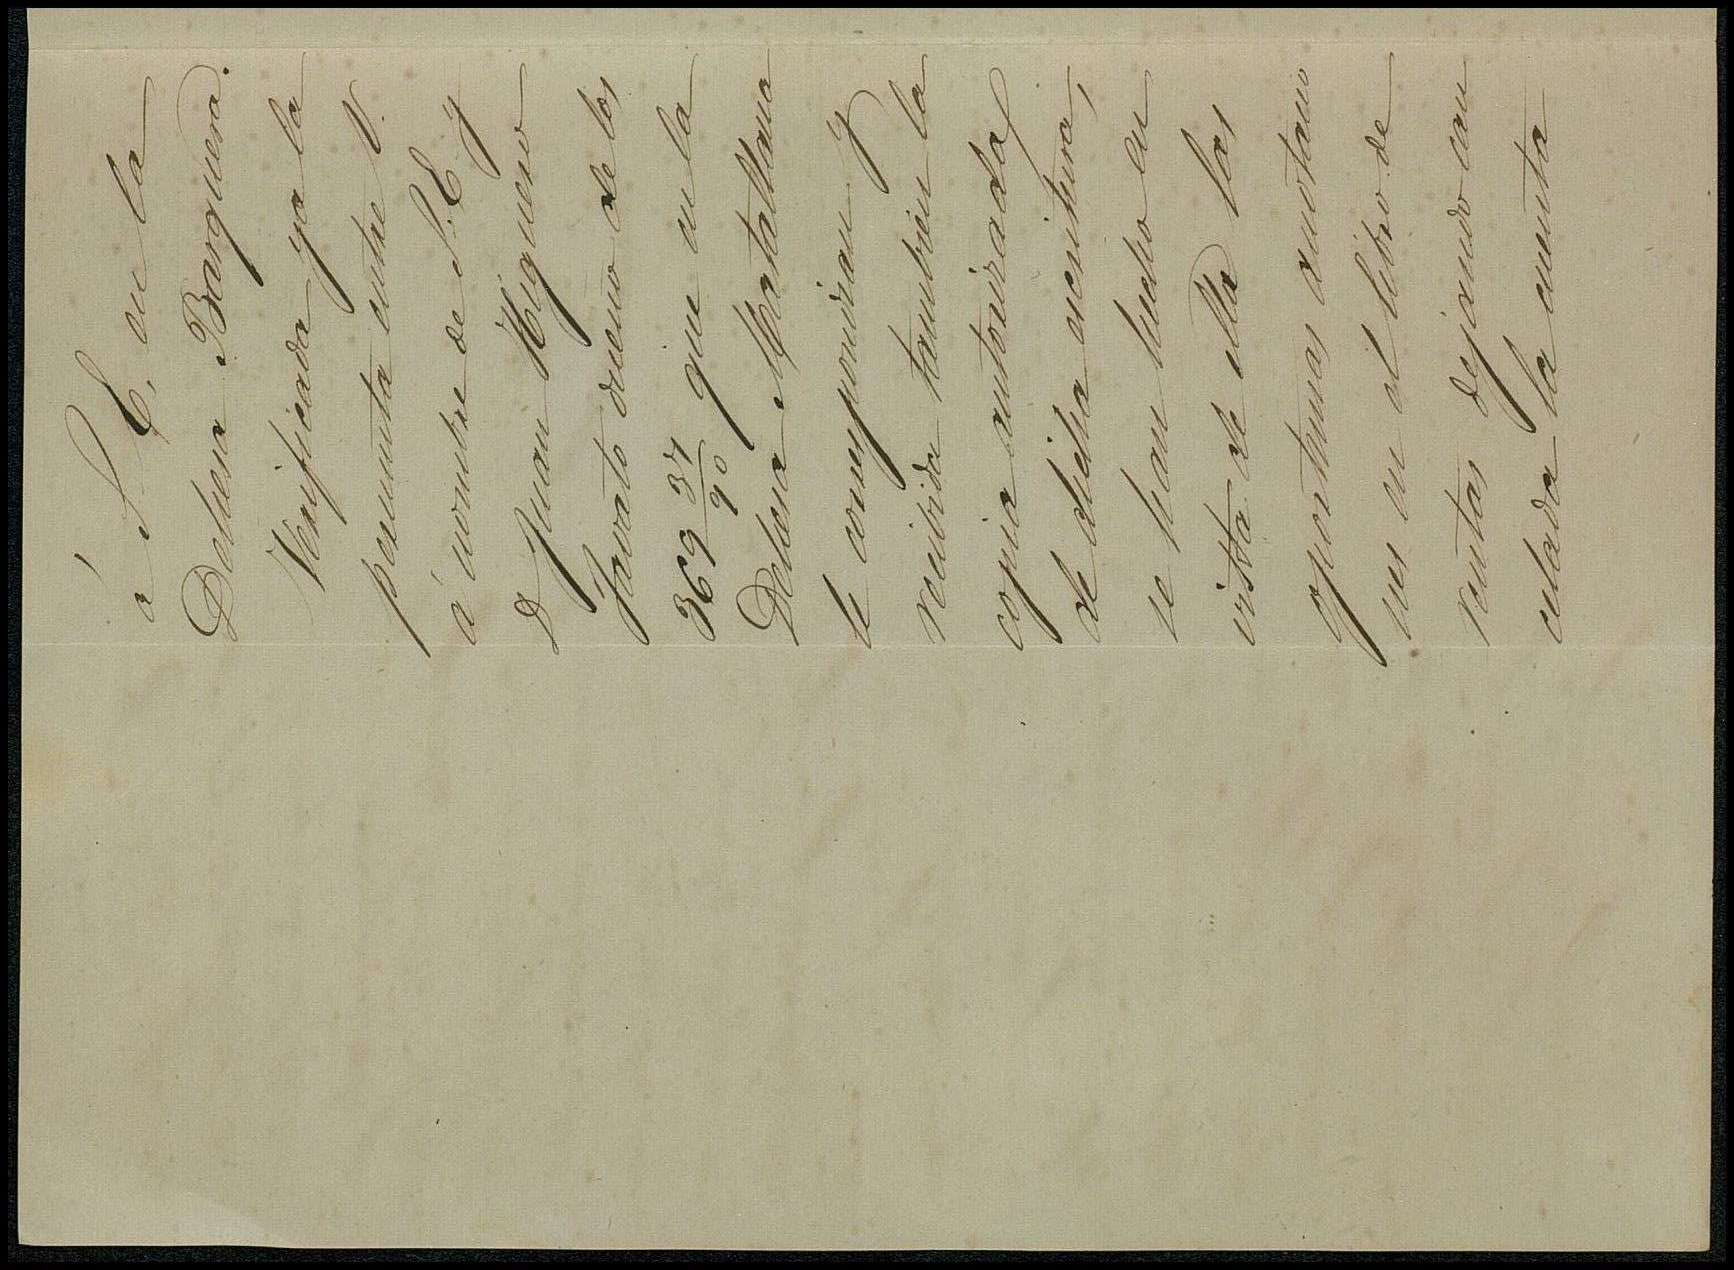 á S. E, en la
Dehesa Barquera.
Verificada ya la
permuta entre V.
á nombre de S. E y
D Juan Higuero
Jurato dueño de los
369 37/90 que en la
Dehesa Matallana
le correspondian y
recibida tambien la
copia autorizada
de dicha escritura,
se han hecho en
vista de ella las
oportunas anotacio
nes en el libro de
rentas dejando can
celada la cuenta